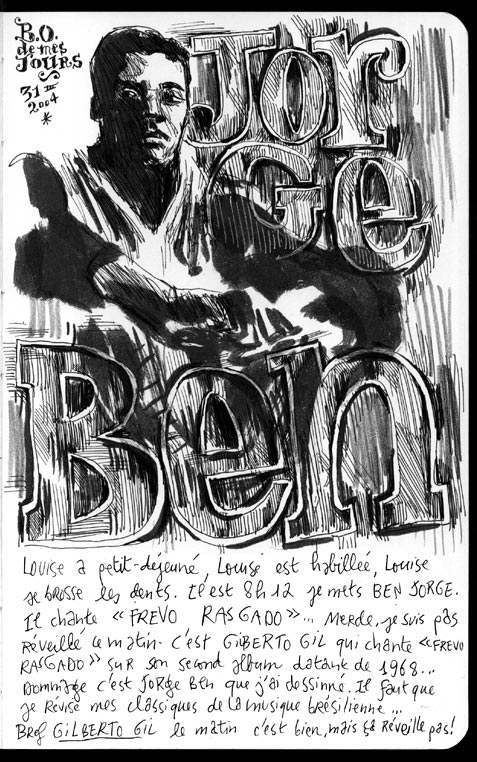 B.O.
de mes
JOURS
31 III
2004
*
Jor
Ge
Ben
Louise a petit-déjeuné, Louise est habillée, Louise
se brosse les dents. Il est 8h12 je mets BEN JORGE.
Il chante « FREVO RASGADO »... Merde, je suis pas
Réveillé ce matin. C'est GILBERTO GIL qui chante « FREVO
RASGADO » SUR son second album datant de 1968...
Dommage c'est JORGE BEN que j'ai dessiné. Il faut que
je Révise mes classiques de la musique brésilienne...
Bref GILBERTO GIL le matin c'est bien, mais çà Réveille pas!